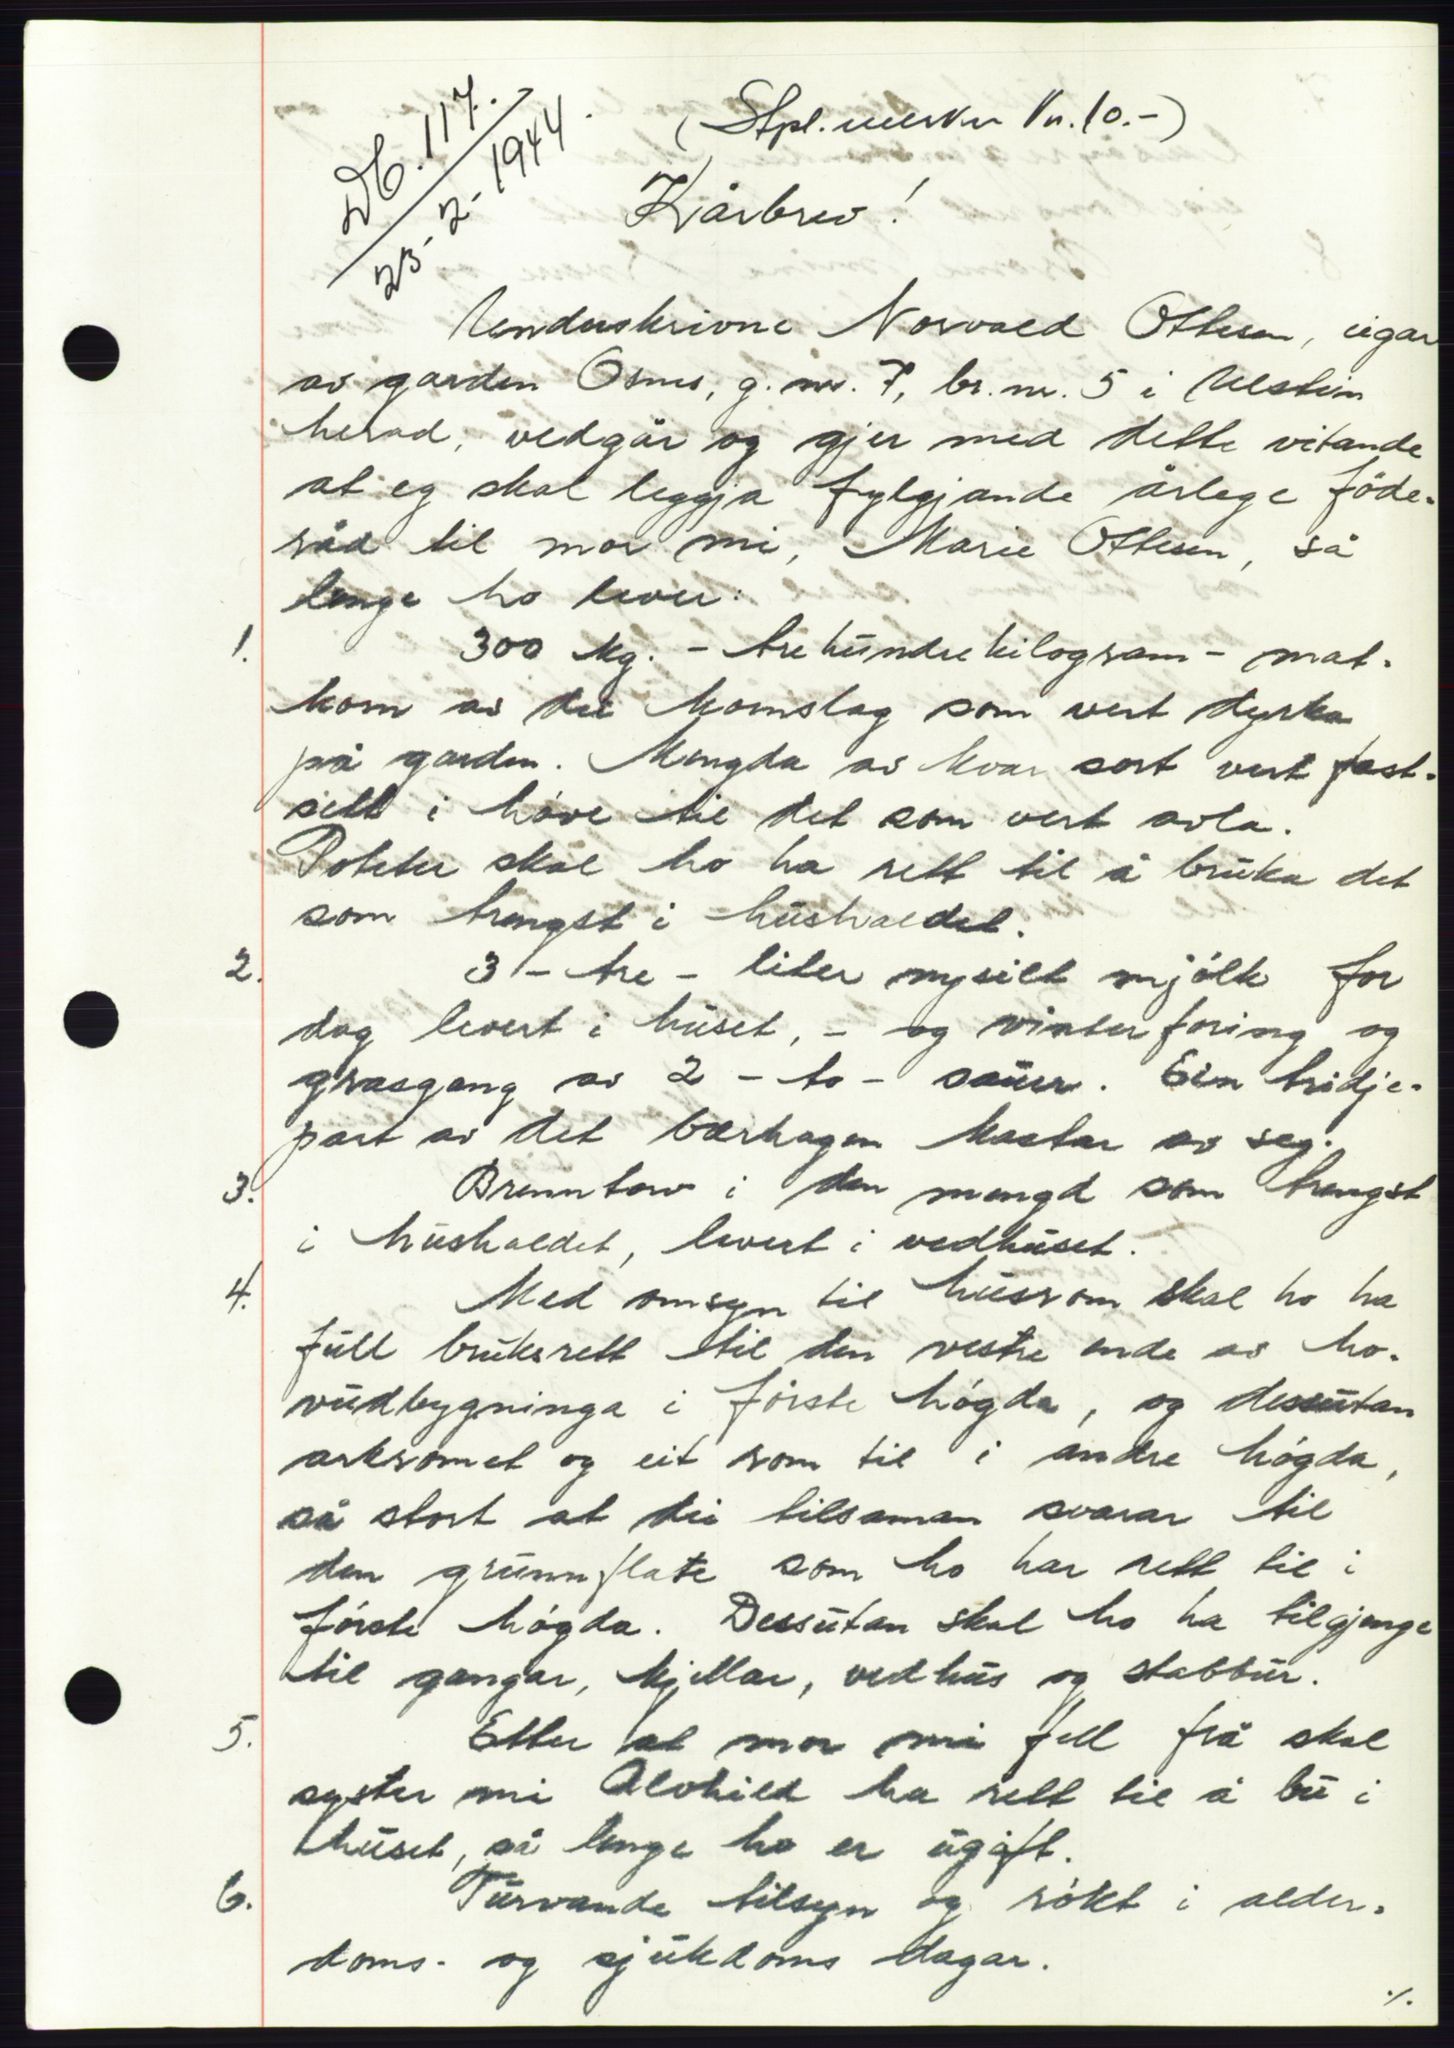 Db. 117.
23-2-1944.
(Stpl. merker Kr. 10.-)
Kårbrev!
Underskrivne Norvald Ottesen, eigar
av garden Osnes, g. nr. 7, br. nr. 5 i Ulstein
herad, vedgår og gjer med dette vitande
at eg skal leggja fylgjande årlege föde-
råd til mor mi, Marie Ottesen, så
lenge ho lever:
1. 300 kg. - trehundrekilogram - mat-
korn av dei kornslag som vert dyrka
på garden. Mengda av kvar sort vert fast-
sett i høve til det som vert avla.
Poteter skal ho ha rett til å bruka det
som trengst i hushaldet.
2. 3 - tre - liter nysilt mjölk for
dag levert i huset, - og vinterforing og
grasgang av 2 - to - sauer. Ein tridje-
part av det bærhagen kastar av seg.
3. Brenntorv i den mengd som trengst
i hushaldet, levert i vedhuset.
4. Med omsyn til husrom skal ho ha
full bruksrett til den vestre ende av ho-
vudbygninga i förste högda, og dessutan
arkromet og eit rom til i andre högda,
så stort at dei tilsaman svarar til
den grunnflate som ho har rett til i
förste högda. Dessutan skal ho ha tilgjenge
til gangar, kjellar, vedhus og stabbur.
5. Etter at mor mi fell frå skal
syster mi Alvhild ha rett til å bu i
huset, så lenge ho er ugift.
6. Turvande tilsyn og rökt i alder-
doms- og sjukdoms dagar.
./.